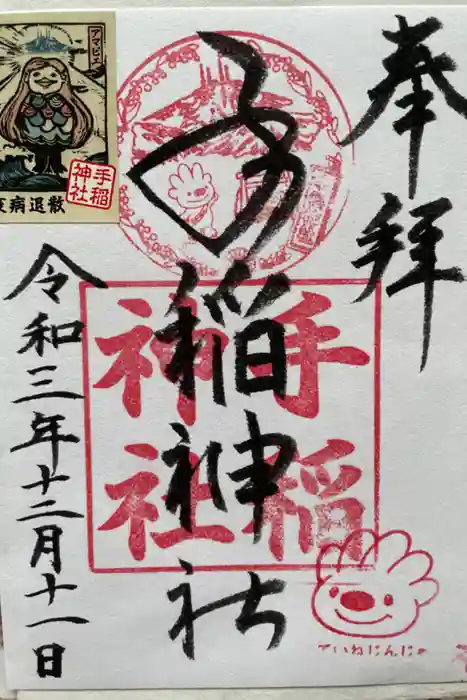 奉拝
手稲神社
手稲
神社
ていねじんじゃ
令和三年十二月十一日
アマビエ
手稲
神社
疫病退散